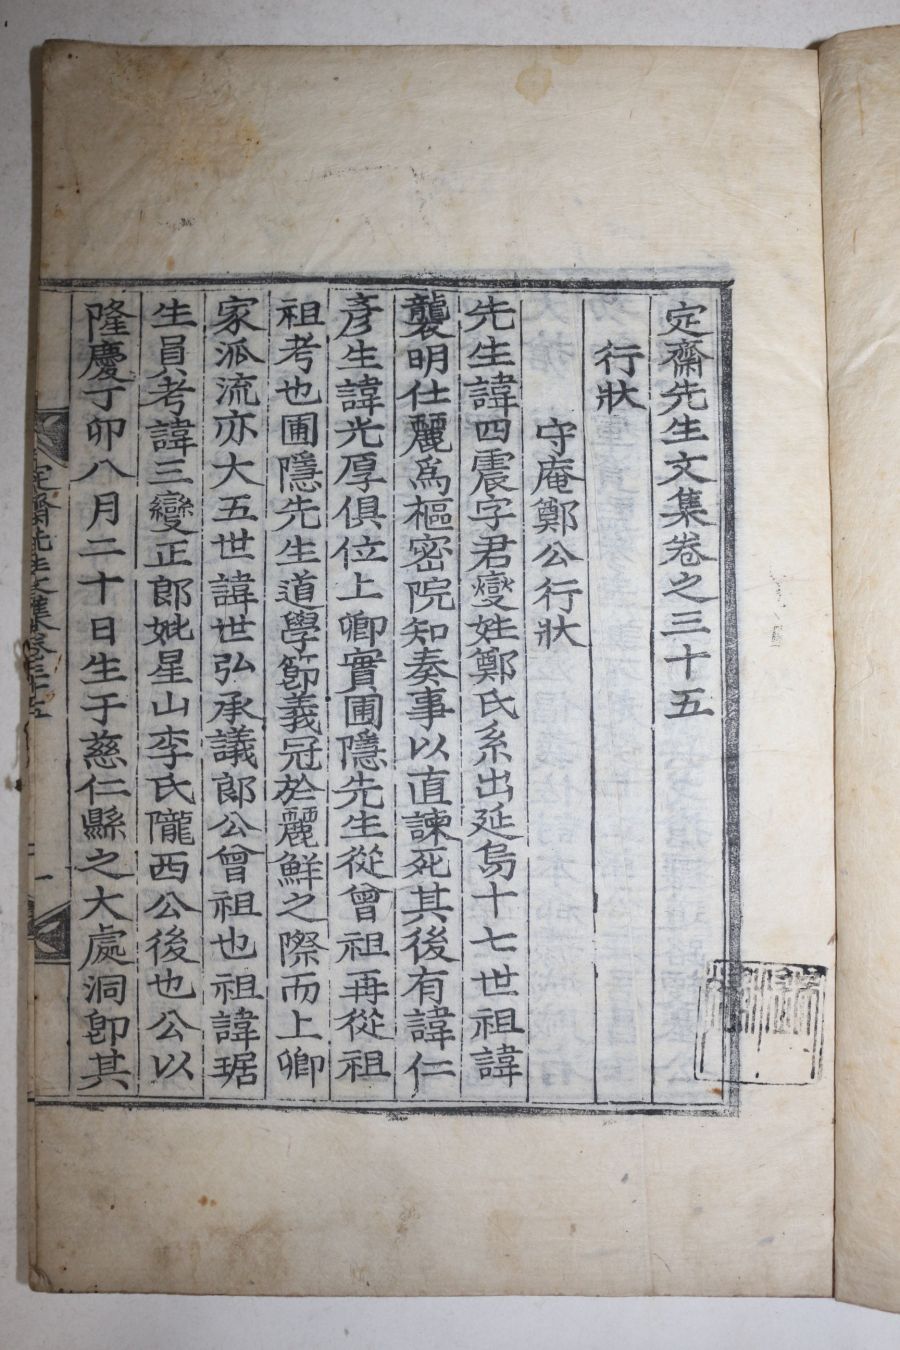 定齋先生文集卷之三十五
行狀
守庵鄭公行狀
先生諱四震字君燮姓鄭氏系出延烏十七世祖諱
襲明仕麗爲樞密院知奏事以直諫死其後有諱仁
彥生諱光厚俱位上卿實圃隱先生從曾祖再從祖
祖考也圃隱先生道學節義冠於麗鮮之際而上卿
家派流亦大五世諱世弘承議郎公曾祖也祖諱琚
生員考諱三變正郎妣星山李氏隴西公後也公以
隆慶丁卯八月二十日生于慈仁縣之大處洞卽其
定齋先生文集卷三十五
一